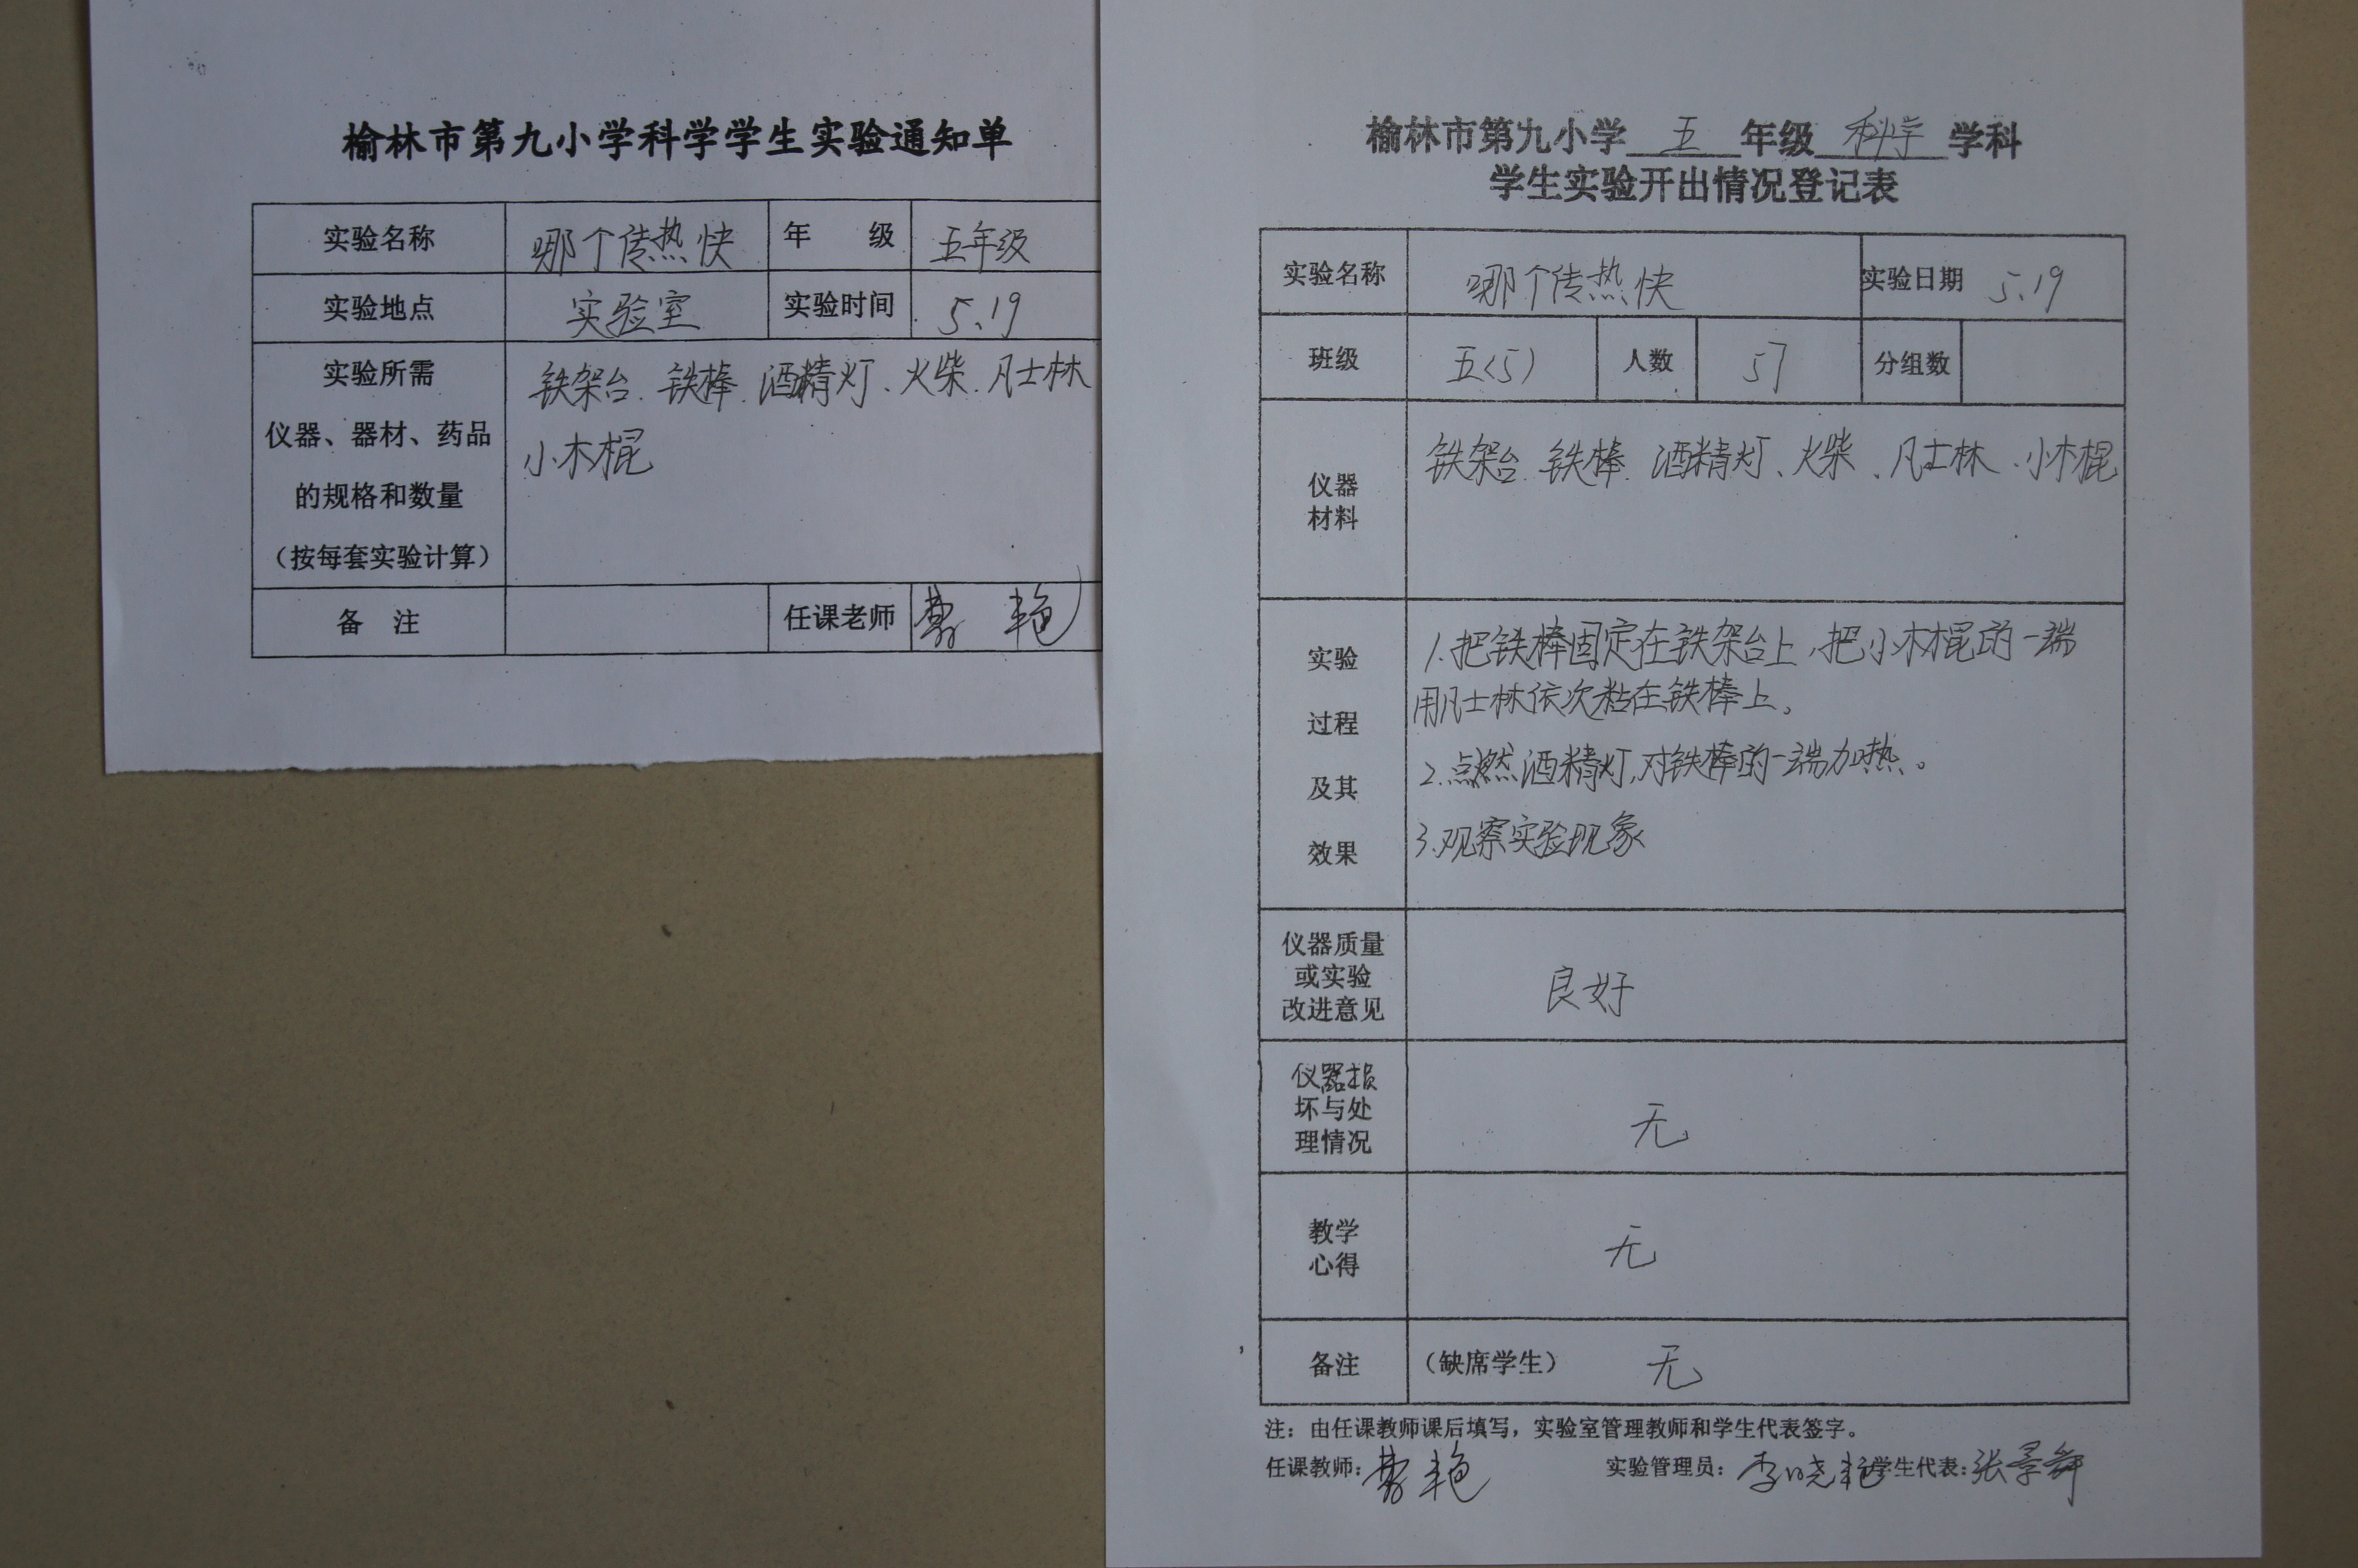 榆林市第九小学科学学生实验通知单
实验名称 哪个传热快 年 级 五年级
实验地点 实验室 实验时间 5.19
实验所需
仪器、器材、药品
的规格和数量
（按每套实验计算）
铁架台.铁棒.酒精灯、火柴.凡士林
小木棍
备 注 任课老师
榆林市第九小学 五 年级 科学 学科
学生实验开出情况登记表
实验名称 哪个传热快 实验日期 5.19
班级 五(5) 人数 57 分组数
仪器
材料
铁架台.铁棒.酒精灯、火柴、凡士林.小木棍
实验
过程
及其
效果
1.把铁棒固定在铁架台上,把小木棍的一端
用凡士林依次粘在铁棒上。
2.点燃酒精灯,对铁棒的一端加热。
3.观察实验现象
仪器质量
或实验
改进意见
良好
仪器损
坏与处
理情况
无
教学
心得
无
备注 （缺席学生） 无
注：由任课教师课后填写，实验室管理教师和学生代表签字。
任课教师： 实验管理员：李晓艳 学生代表：张景舜